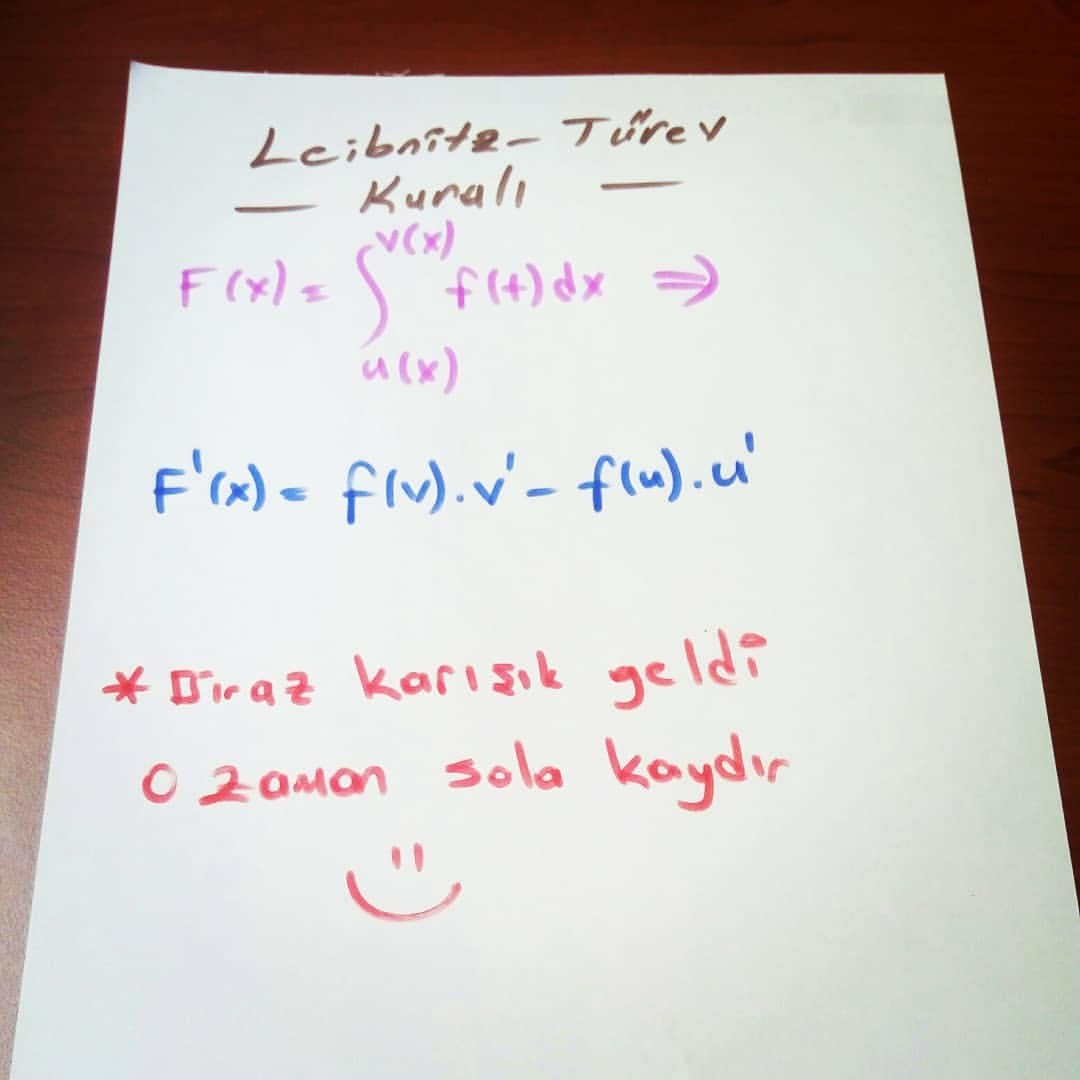 Leibnitz - Türev
— Kuralı —
F(x) = ∫_{u(x)}^{v(x)} f(t) dx ⇒
F'(x) = f(v).v' - f(u).u'
* Biraz karışık geldi
O zaman sola kaydır